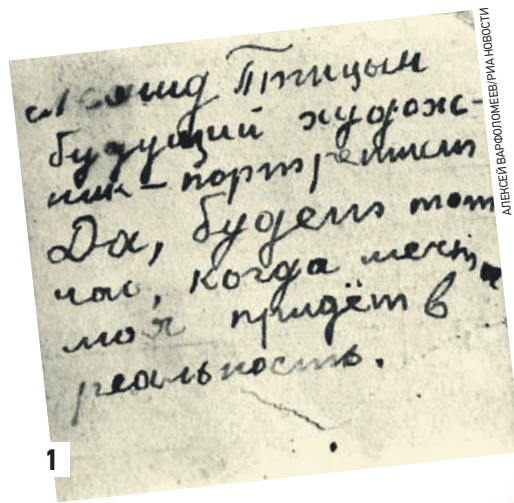 Леонид Птицын
будущий худож-
ник-портретист
Да, будет тот
час, когда мечта
моя придёт в
реальность.
1
АЛЕКСЕЙ ВАРФОЛОМЕЕВ/РИА НОВОСТИ